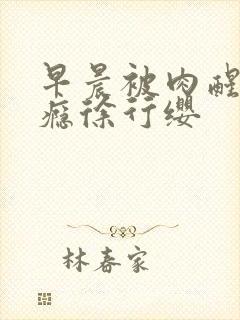 早晨被肉醒
瘾徐行缨
林春家